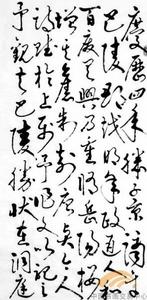 慶歷四年春滕子京謫守
巴陵郡越明年政通人和
百廢具興乃重修岳陽樓
增其舊制刻唐賢今人
詩賦於其上屬予作文以記之
予觀夫巴陵勝狀在洞庭